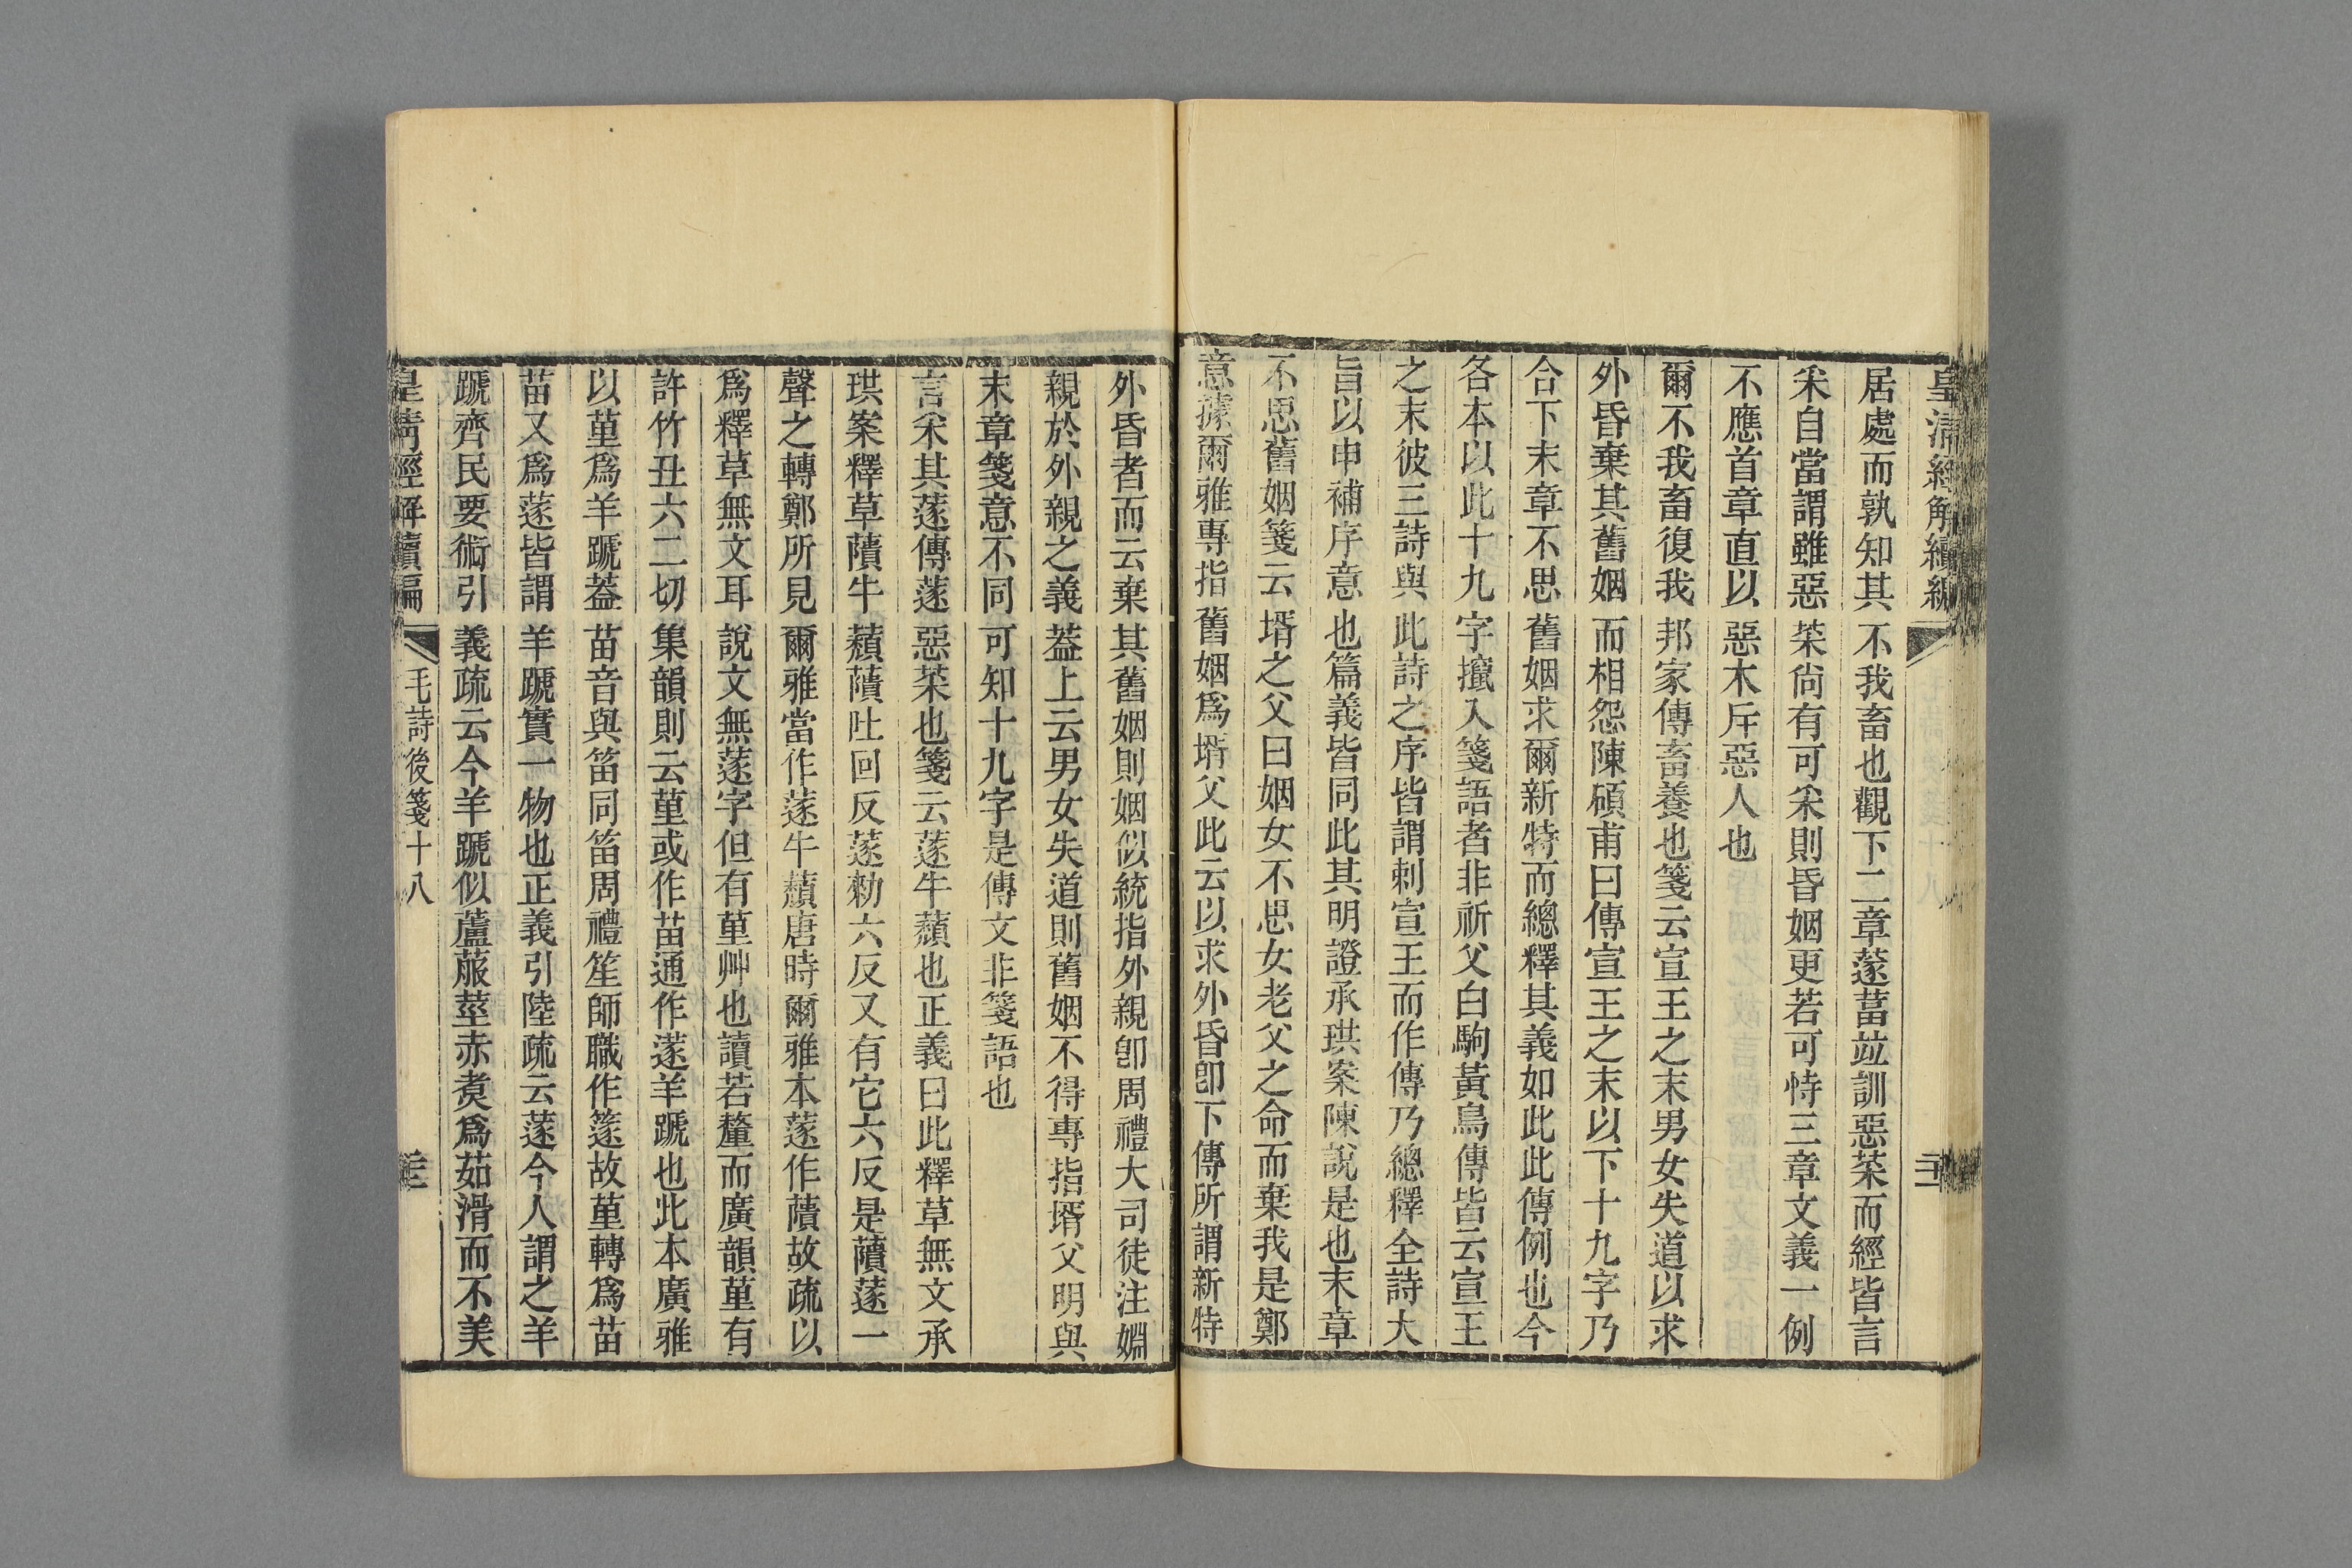 皇清經解續編
居處而孰知其不我畜也觀下二章蓫葍竝訓惡菜而經皆言
釆自當謂雖惡菜尙有可釆則昏姻更若可恃三章文義一例
不應首章直以惡木斥惡人也
爾不我畜復我邦家傳畜養也箋云宣王之末男女失道以求
外昏棄其舊姻而相怨陳碩甫曰傳宣王之末以下十九字乃
合下末章不思舊姻求爾新特而總釋其義如此此傳例也今
各本以此十九字攛入箋語者非祈父白駒黃鳥傳皆云宣王
之末彼三詩與此詩之序皆謂刺宣王而作傳乃總釋全詩大
旨以申補序意也篇義皆同此其明證承珙案陳說是也末章
不思舊姻箋云壻之父曰姻女不思女老父之命而棄我是鄭
意據爾雅專指舊姻爲壻父此云以求外昏卽下傳所謂新特
外昏者而云棄其舊姻則姻似統指外親卽周禮大司徒注婣
親於外親之義葢上云男女失道則舊姻不得專指壻父明與
末章箋意不同可知十九字是傳文非箋語也
言釆其蓫傳蓫惡菜也箋云蓫牛蘈也正義曰此釋草無文承
珙案釋草藬牛蘈藬吐回反蓫勑六反又有它六反是藬蓫一
聲之轉鄭所見爾雅當作蓫牛蘈唐時爾雅本蓫作藬故疏以
爲釋草無文耳說文無蓫字但有堇艸也讀若釐而廣韻堇有
許竹丑六二切集韻則云堇或作苗通作蓫羊蹏也此本廣雅
以堇爲羊蹏葢苗音與笛同笛周禮笙師職作篴故堇轉爲苗
苗又爲蓫皆謂羊蹏實一物也正義引陸疏云蓫今人謂之羊
蹏齊民要術引義疏云今羊蹏似蘆菔莖赤煑爲茹滑而不美
皇淸經解續編
毛詩後箋十八